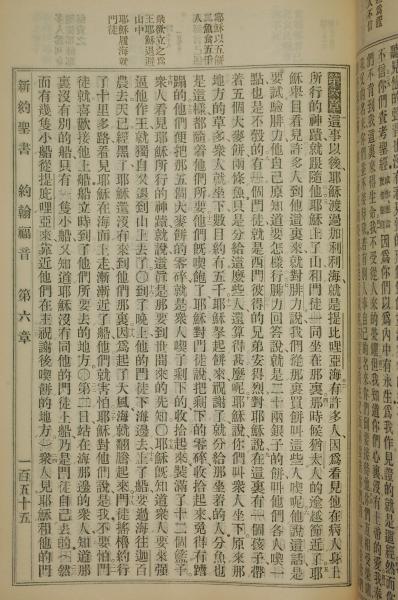 耶穌以五餅
二魚食五千
第六章 這事以後耶穌渡過加利利海就是提比哩亞海有許多人因爲看見他在病人身上
所行的神蹟就跟隨他耶穌上了山和門徒一同坐在那裏那時候猶太人的逾越節近了耶
穌舉目看見許多人到他這裏來就對腓力說我們從那裏買餅叫這些人喫呢他說這話是
要試驗腓力他自己原知道要怎樣行腓力回答說就是二十兩銀子的餅叫他們各人喫一
點也是不彀的有一個門徒就是西門彼得的兄弟安得烈對耶穌說在這裏有一個孩子帶
着五個大麥餅兩條魚只是分給這麼些人還算得甚麼呢耶穌說你們叫衆人坐下原來那
地方的草多衆人就坐下數目約有五千耶穌拏起餅來祝謝了就分給那坐着的人分魚也
是這樣都隨着他們所要他們旣喫飽了耶穌對門徒說把剩下的零碎收拾起來免得有蹧
蹋的他們便把那五個大麥餅的零碎就是衆人喫了剩下的收拾起來裝滿了十二個籃子
衆人看見耶穌所行的神蹟就說這眞是那要到世間來的先知○耶穌旣知道衆人要來強
逼他作王就獨自又退到山上去了○到了晚上他的門徒下海邊去上了船要過海往迦百
農去天已經黑了耶穌還沒有來到他們那裏因爲起了大風海就翻騰起來門徒搖櫓約行
了十里多路看見耶穌在海面上走漸漸近了船他們就害怕耶穌對他們說是我不要怕門
徒就喜歡接他上船船立時到了他們所要去的地方○第二日站在海那邊的衆人知道那
裏沒有別的船只有一隻小船又知道耶穌沒有同他的門徒上船乃是門徒自己去的（然
而有幾隻小船從提庇哩亞來靠近他們在主祝謝後喫餅的地方）衆人見耶穌和他的門
衆欲立之爲
王耶穌退避
山中
耶穌履海就
門徒
新約聖書 約翰福音 第六章 一百五十五